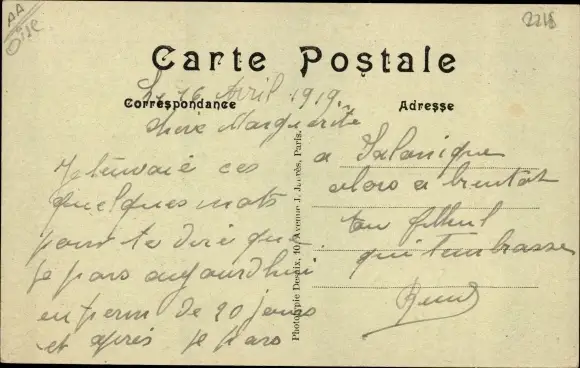 AA
Oise
2218
Carte Postale
Le 16 Avril 1919.
Correspondance
Adresse
chère Marguerite
Je t'envoie ces
quelques mots
pour te dire que
je pars aujourdhui
en perm de 20 jours
et après je pars
a Salonique
alors a bientôt
ton filleul
qui t'embrasse
René
Phototypie Desaix, 10, Avenue J. Jaurès, Paris.